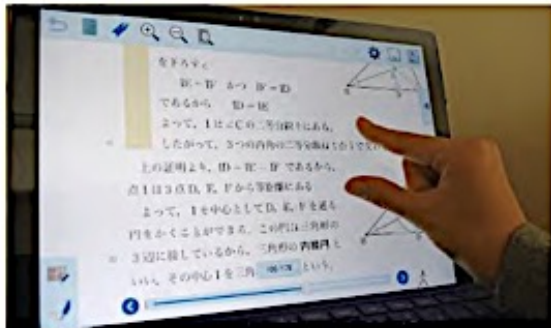 をおろすと
IE＝IF かつ IF＝ID
であるから ID＝IE
よって，Iは∠Cの二等分線上にある。
したがって，3つの内角の二等分線は1点Iで
上の証明より，ID＝IE＝IF であるから，
点Iは3点D，E，Fから等距離にある
よって，Iを中心としてD，E，Fを通る
円をかくことができる。この円は三角形の
3辺に接しているから，三角形の内接円と
いい，その中心Iを三角 という。